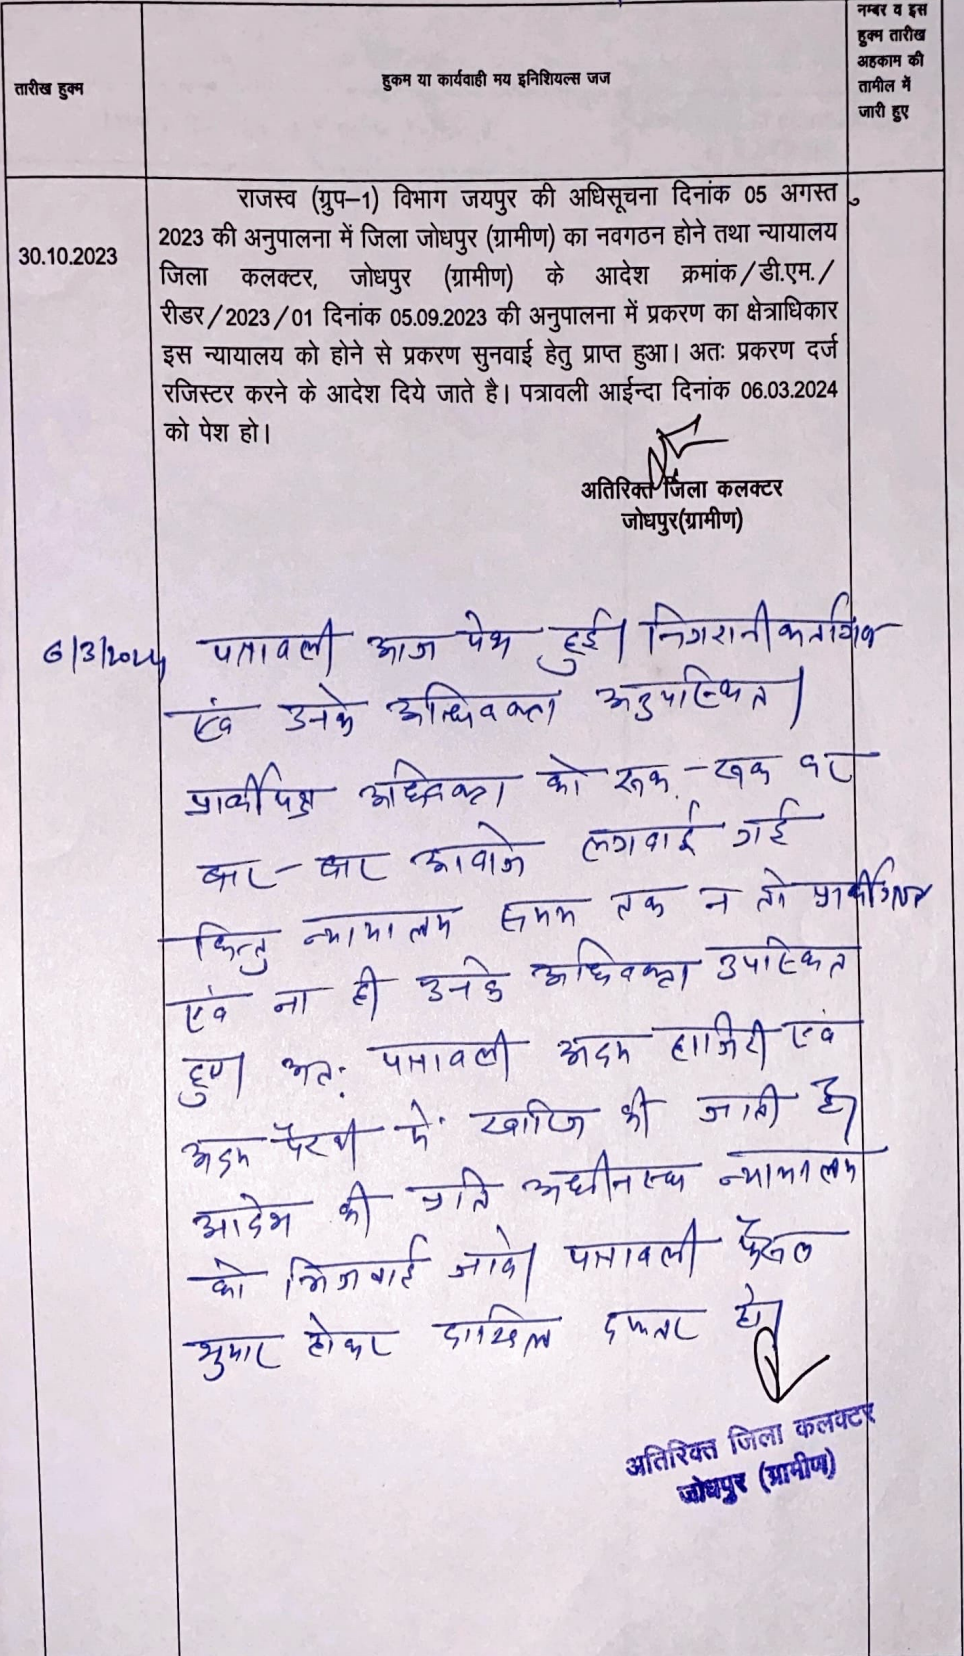 तारीख हुक्म
हुकम या कार्यवाही मय इनिशियल्स जज
नम्बर व इस
हुक्म तारीख
अहकाम की
तामील में
जारी हुए
30.10.2023
राजस्व (ग्रुप–1) विभाग जयपुर की अधिसूचना दिनांक 05 अगस्त
2023 की अनुपालना में जिला जोधपुर (ग्रामीण) का नवगठन होने तथा न्यायालय
जिला कलक्टर, जोधपुर (ग्रामीण) के आदेश क्रमांक/डी.एम./
रीडर/2023/01 दिनांक 05.09.2023 की अनुपालना में प्रकरण का क्षेत्राधिकार
इस न्यायालय को होने से प्रकरण सुनवाई हेतु प्राप्त हुआ। अतः प्रकरण दर्ज
रजिस्टर करने के आदेश दिये जाते है। पत्रावली आईन्दा दिनांक 06.03.2024
को पेश हो।
अतिरिक्त जिला कलक्टर
जोधपुर(ग्रामीण)
6/3/2024 पत्रावली आज पेश हुई। निगरानीकर्ता
एवं उनके अधिवक्ता अनुपस्थित।
अधिवक्ता को रूक-रूक कर
बार-बार आवाजे लगवाई गई
किन्तु न्यायालय समय तक न तो
एवं ना ही उनके अधिवक्ता उपस्थित
हुए। अतः पत्रावली अदम हाजिरी एवं
अदम पैरवी में खारिज की जाती है।
आदेश की प्रति अधीनस्थ न्यायालय
को भिजवाई जावे। पत्रावली फैसल
शुमार होकर दाखिल दफ्तर हो।
अतिरिक्त जिला कलक्टर
जोधपुर (ग्रामीण)